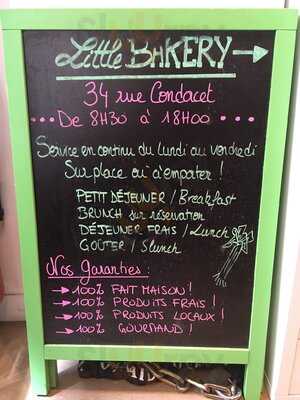 Little BAKERY
34 rue Condacet
De 8H30 à 18H00
Service en continu du lundi au vendredi
Sur place ou à emporter !
PETIT DÉJEUNER / Breakfast
BRUNCH sur réservation
DÉJEUNER FRAIS / Lunch
GOÛTER / Slunch
Nos Garanties :
100% FAIT MAISON !
100% PRODUITS FRAIS !
100% PRODUITS LOCAUX !
100% GOURMAND !